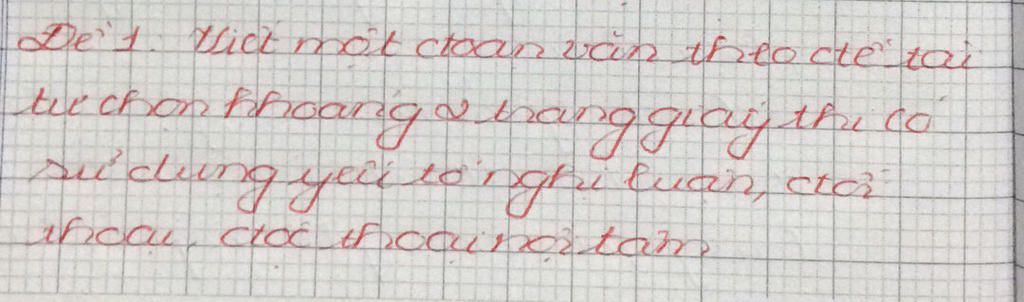 Đề 1. Viết một đoạn văn theo đề tài
tự chọn khoảng 2 trang giấy thi có
sử dụng yếu tố nghị luận, đối
thoại, độc thoại nội tâm